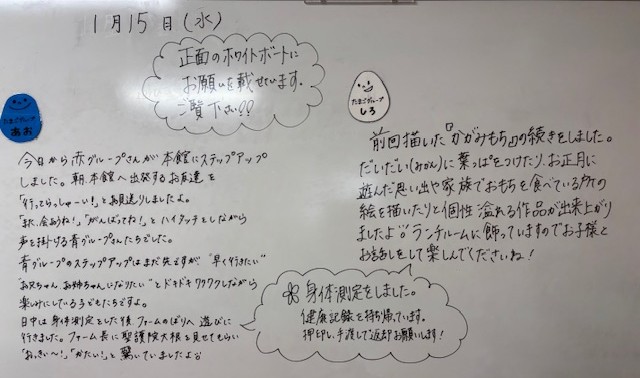 1月15日(水)
正面のホワイトボートに
お願いを載せています。
ご覧下さい??
たまごグループ
あお
今日から赤グループさんが本館にステップアップ
しました。朝、本館へ出発するお友達を
「行ってらっしゃーい!」とお見送りしましたよ。
「また、会おうね!」「がんばってね!」とハイタッチをしながら
声を掛ける青グループさんたちでした。
青グループのステップアップはまだ先ですが“早く行きたい”
“お兄ちゃん、お姉ちゃんになりたい”とドキドキワクワクしながら
楽しみにしている子どもたちですよ。
日中は身体測定をした後、ファームのぼりへ遊びに
行きました。ファーム長に聖護院大根を見せてもらい
「おっきい〜!」「かたい!」と驚いていましたよ
たまごグループ
しろ
前回描いた『かがみもち』の続きをしました。
だいだい(みかん)に葉っぱをつけたり、お正月に
遊んだ思い出や家族でおもちを食べている所の
絵を描いたりと個性溢れる作品が出来上がり
ましたよ。ランチルームに飾っていますのでお子様と
お話をして楽しんでくださいね!
身体測定をしました。
健康記録を持ち帰っています。
押印し、手渡しで返却お願いします!